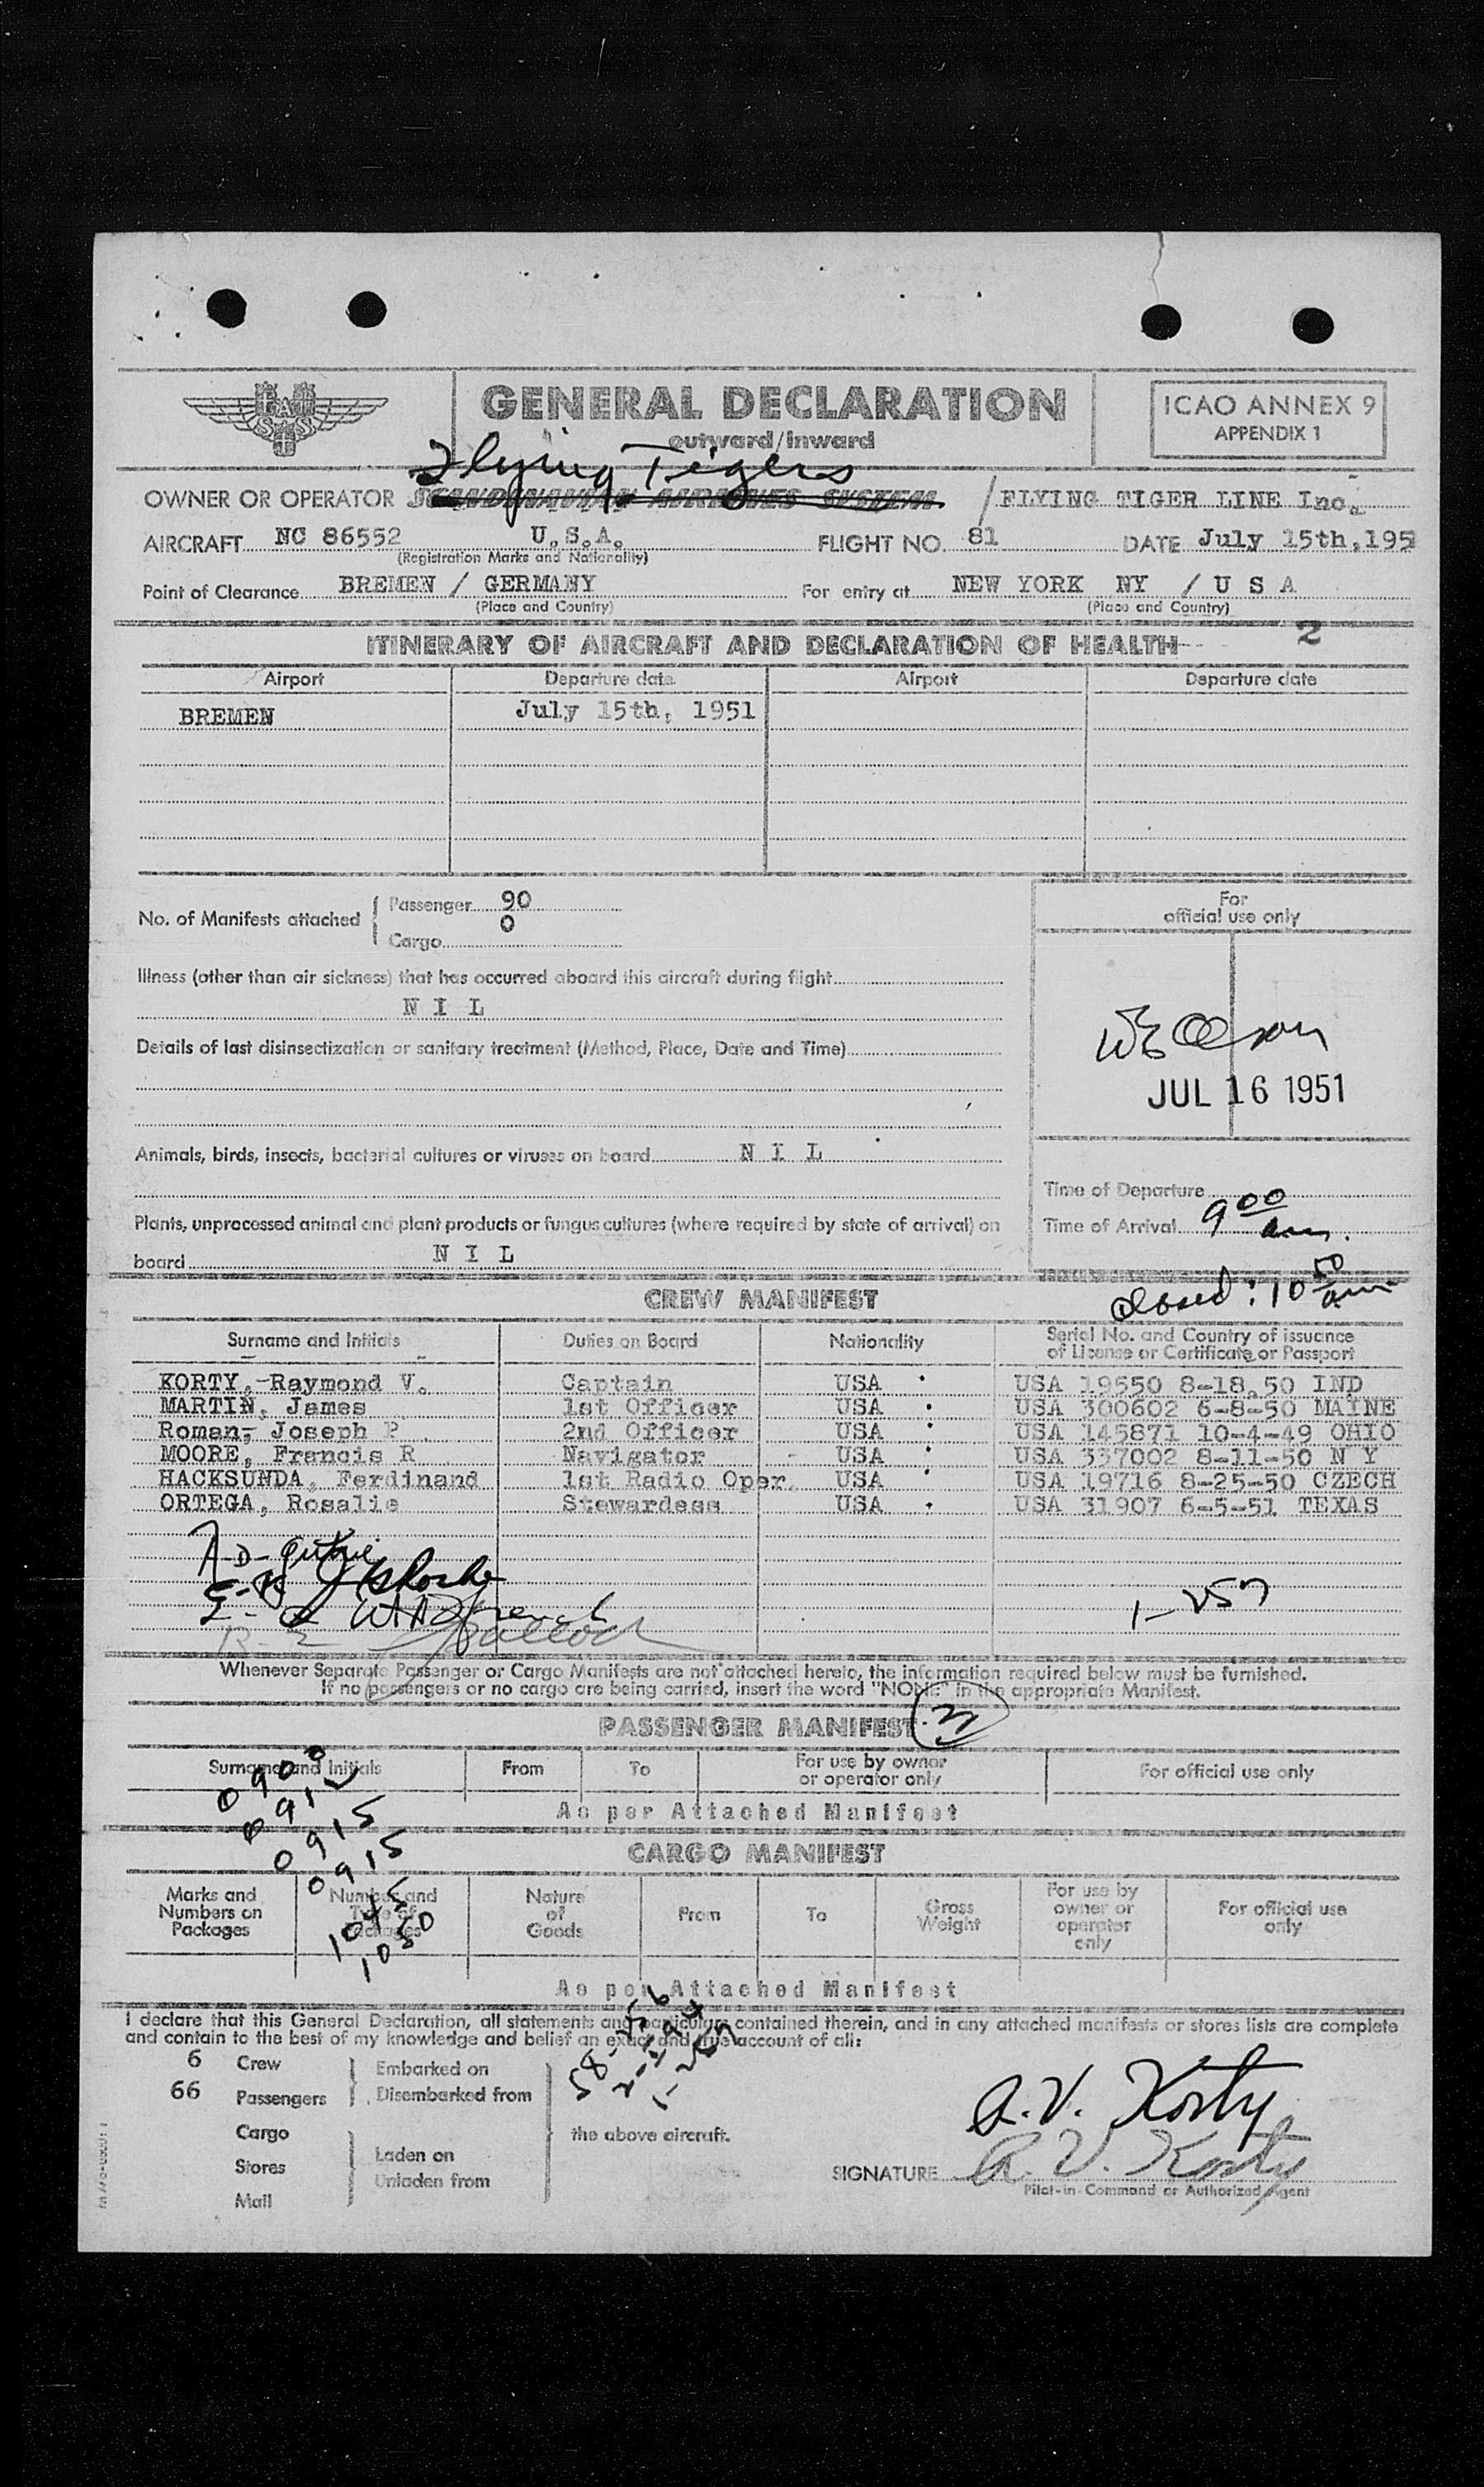 GENERAL DECLARATION
outward/inward
ICAO ANNEX 9
APPENDIX 1
Flying Tigers
OWNER OR OPERATOR SCANDINAVIAN AIRLINES SYSTEM / FLYING TIGER LINE Inc.
AIRCRAFT NC 86552 U.S.A. FLIGHT NO. 81 DATE July 15th, 195
(Registration Marks and Nationality)
Point of Clearance BREMEN / GERMANY For entry at NEW YORK NY / U S A
(Place and Country) (Place and Country)
ITINERARY OF AIRCRAFT AND DECLARATION OF HEALTH 2
Airport Departure date Airport Departure date
BREMEN July 15th, 1951
No. of Manifests attached
Passenger 90
Cargo 0
For
official use only
Illness (other than air sickness) that has occurred aboard this aircraft during flight
N I L
Details of last disinsectization or sanitary treatment (Method, Place, Date and Time)
JUL 16 1951
Animals, birds, insects, bacterial cultures or viruses on board N I L
Time of Departure
Plants, unprocessed animal and plant products or fungus cultures (where required by state of arrival) on
Time of Arrival 9 00 am.
board N I L
closed: 10 50 am
CREW MANIFEST
Surname and Initials Duties on Board Nationality Serial No. and Country of issuance
of License or Certificate or Passport
KORTY, Raymond V. Captain USA USA 19550 8-18.50 IND
MARTIN, James 1st Officer USA USA 300602 6-8-50 MAINE
Roman, Joseph P 2nd Officer USA USA 145871 10-4-49 OHIO
MOORE, Francis R Navigator USA USA 337002 8-11-50 N Y
HACKSUNDA, Ferdinand 1st Radio Oper. USA USA 19716 8-25-50 CZECH
ORTEGA, Rosalie Stewardess USA USA 31907 6-5-51 TEXAS
1-257
Whenever Separate Passenger or Cargo Manifests are not attached hereto, the information required below must be furnished.
If no passengers or no cargo are being carried, insert the word "NONE" in the appropriate Manifest.
PASSENGER MANIFEST
Surname and Initials From To For use by owner
or operator only For official use only
0900
0912
0915
0915
1045
1050
As per Attached Manifest
CARGO MANIFEST
Marks and
Numbers on
Packages
Number and
Type of
Packages
Nature
of
Goods
From
To
Gross
Weight
For use by
owner or
operator
only
For official use
only
As per Attached Manifest
I declare that this General Declaration, all statements and particulars contained therein, and in any attached manifests or stores lists are complete
and contain to the best of my knowledge and belief an exact and true account of all:
6 Crew
66 Passengers
Embarked on
Disembarked from
Cargo
Stores
Mail
Laden on
Unladen from
the above aircraft.
R.V. Korty
SIGNATURE R. V. Korty
Pilot-in-Command or Authorized Agent